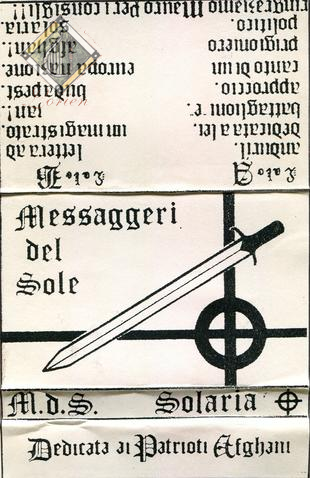 Lato A
anduril.
dedicata a lei.
battaglione
approccio.
canto di un
prigioniero
politico.
Lato B
lettera ad
un magistrato.
jan!.
budapest.
europa nazione.
afghan!.
solaria.
ringraziamo Mauro Per i consigli
orien
Messaggeri
del
Sole
M.d.S. Solaria
Dedicata ai Patrioti Afghani